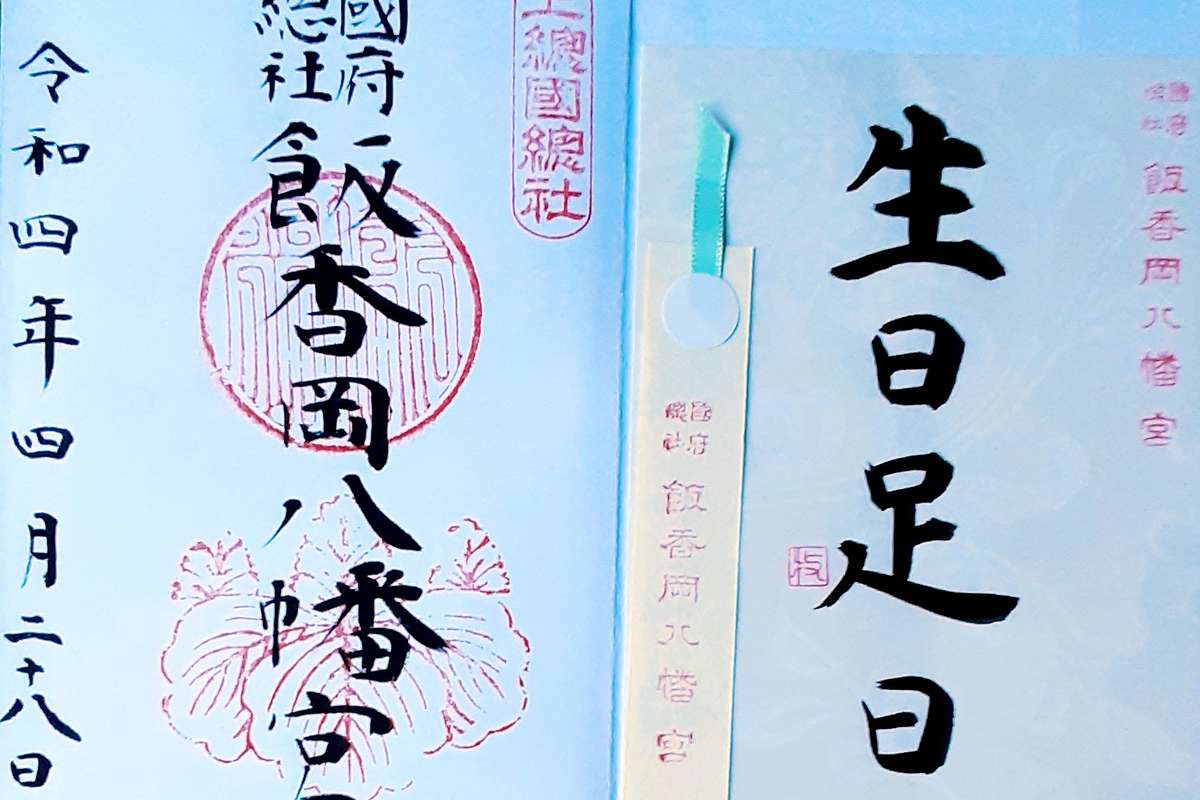 國府
總社
飯香岡八幡宮
生日足日
國府
總社
飯香岡八幡宮
上總國總社
國府
總社
飯香岡八幡宮
令和四年四月二十八日